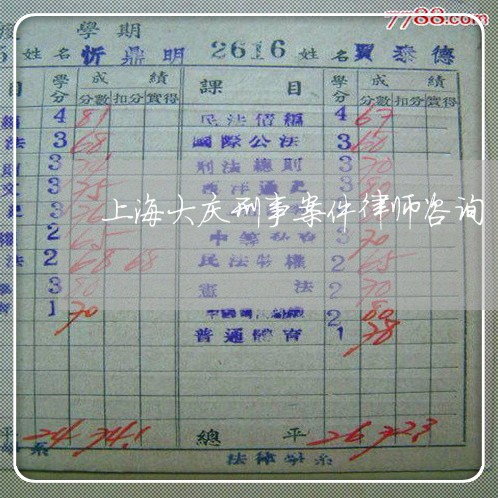 7788.com
學期
姓名 忻鼎明 2616 姓名 賈泰德
目 學分 成績 課目 學分 成績
分數 扣分 實得 分數 扣分 實得
4 81 民法債編 4 67
法 3 68 國際公法 3 60
3 刑法總則 3 70
3 75 西洋通史 3
上海大庆刑事案件律师咨询
權 2 65 3 70
法 2 68 68 民法物權 2 65
3 80 憲法 2 70
1 70 2 80
普通體育 1 78
平 24 74.1 總平 26 72.3
系 法律學系